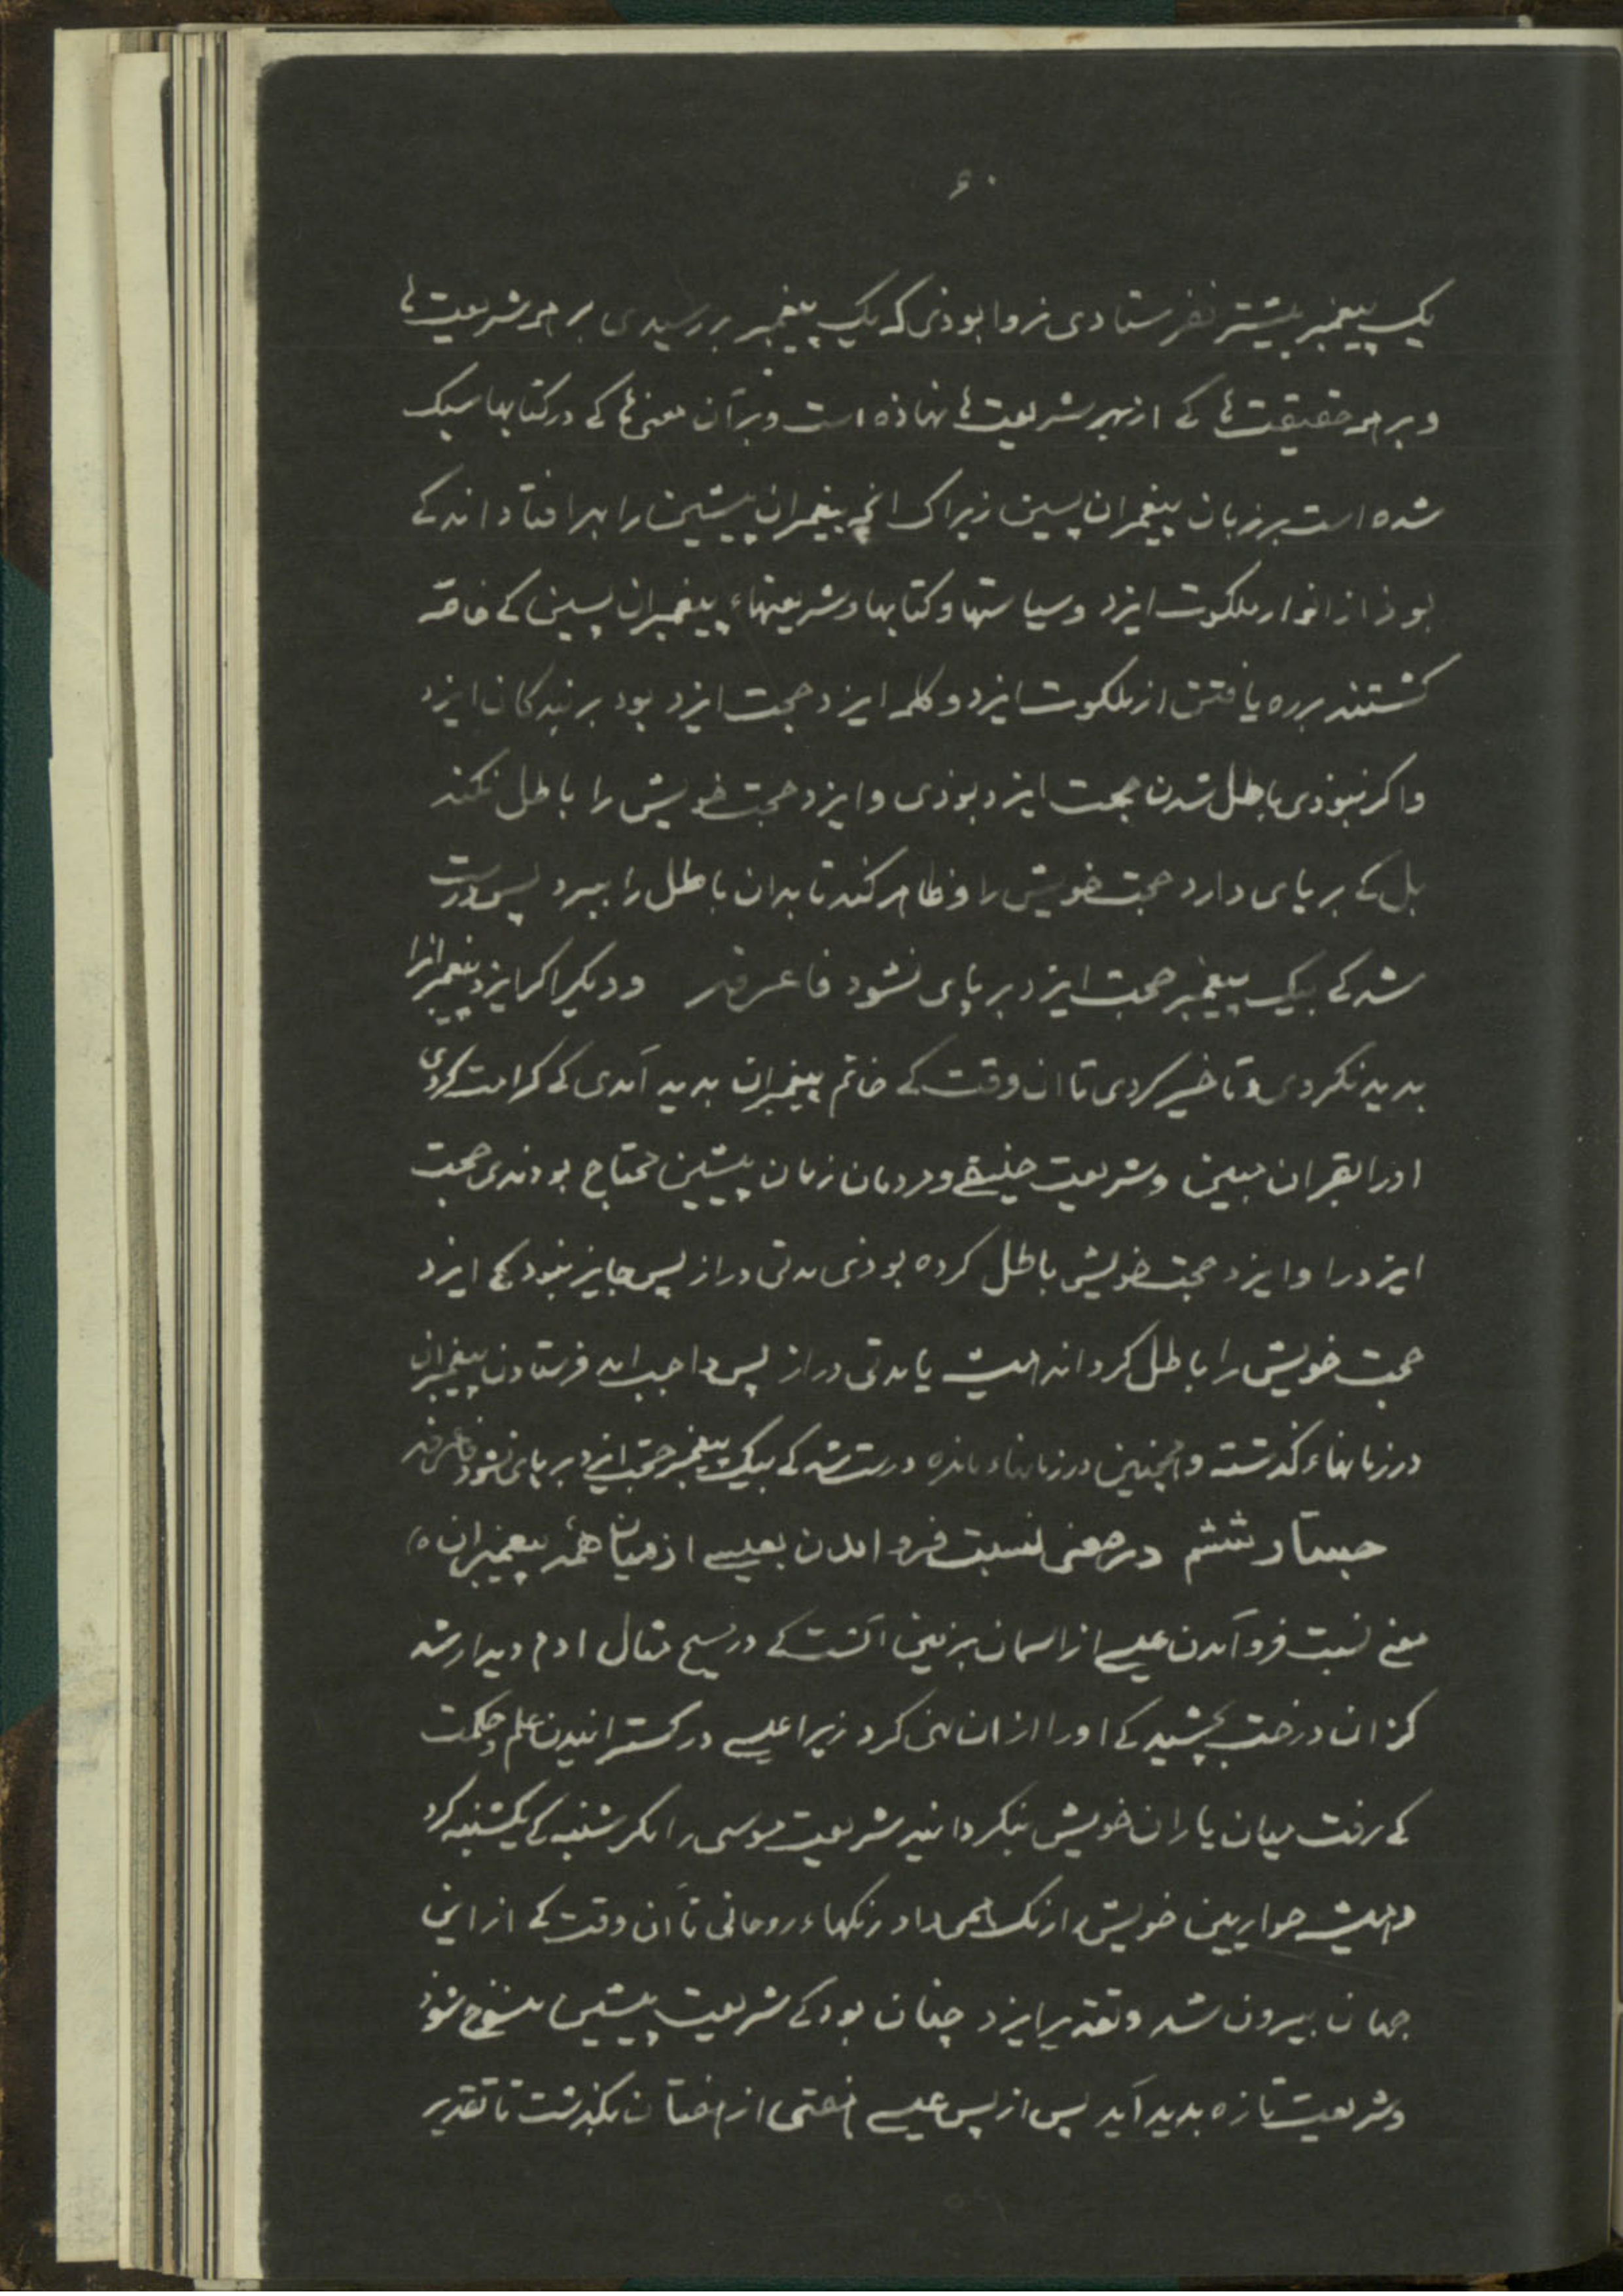 ۶۰
یک پیغمبر بیشتر نفرستادی نه روا بوذی که یک پیغمبر بررسیدی بر همه شریعت‌ها
و بر همه حقیقت‌ها کے از بهر شریعت‌ها نهاذه است و بر آن معنی‌ها کے در کتابها سبک
شده است بر زبان پیغمبران پسین زیراک انچه پیغمبران پیشین را بهر افتاد اند کے
بوذ از انوار ملکوت ایزد و سیاستها و کتابها و شریعتهاء پیغمبران پسین کے خاصّه
کشتند برره یافتن از ملکوت ایزد و کلمه ایزد حجت ایزد بود بر بندکان ایزد
و اکر نبوذی باطل شدن حجت ایزد بوذی و ایزد حجت خویش را باطل نکند
بل کے بر پای دارد حجت خویش را و ظاهر کند تا بدان باطل را ببرد پس درست
شد کے بیک پیغمبر حجت ایزد بر پای نشود فاعرفه و دیکر اکر ایزد پیغمبرانرا
بدید نکردی و تاخیر کردی تا ان وقت کے خاتم پیغمبران بدید آمدی کے کرامت کردی
اورا بقران مبین و شریعت حنیفے و مردمان زمان پیشین محتاج بودندی حجت
ایزد را و ایزد حجت خویش باطل کرده بوذی مدتی دراز پس جایز نبود کے ایزد
حجت خویش را باطل کرداند همیشه یا مدتی دراز پس واجب امد فرستادن پیغمبران
در زمانهاء کذشته و همچنین در زمانهاء مانده درست شد کے بیک پیغمبر حجت ایزد بر پای نشود فاعرفه
جستار ششم در معنی نسبت فرو امدن بعیسے از میان همه پیغمبران
معنے نسبت فرو آمدن عیسے از اسمان بزمین آنست کے در مسیح مثال ادم دیدار شد
کز ان درخت بچشید کے اورا از ان نهی کرد زیرا عیسے در کسترانیدن علم و حکمت
کے رفت میان یاران خویش نبکردانید شریعت موسی را مکر شنبه کے یکشنبه کرد
و همیشه حواریین خویش را رنک همی داد رنکهاء روحانی تا آن وقت کے از این
جهان بیرون شد و تقدیر ایزد چنان بود کے شریعت پیشین منسوخ شوذ
و شریعت تازه بدید آید پس از پس عیسے هفتی از هفتان بکذشت تا تقدیر